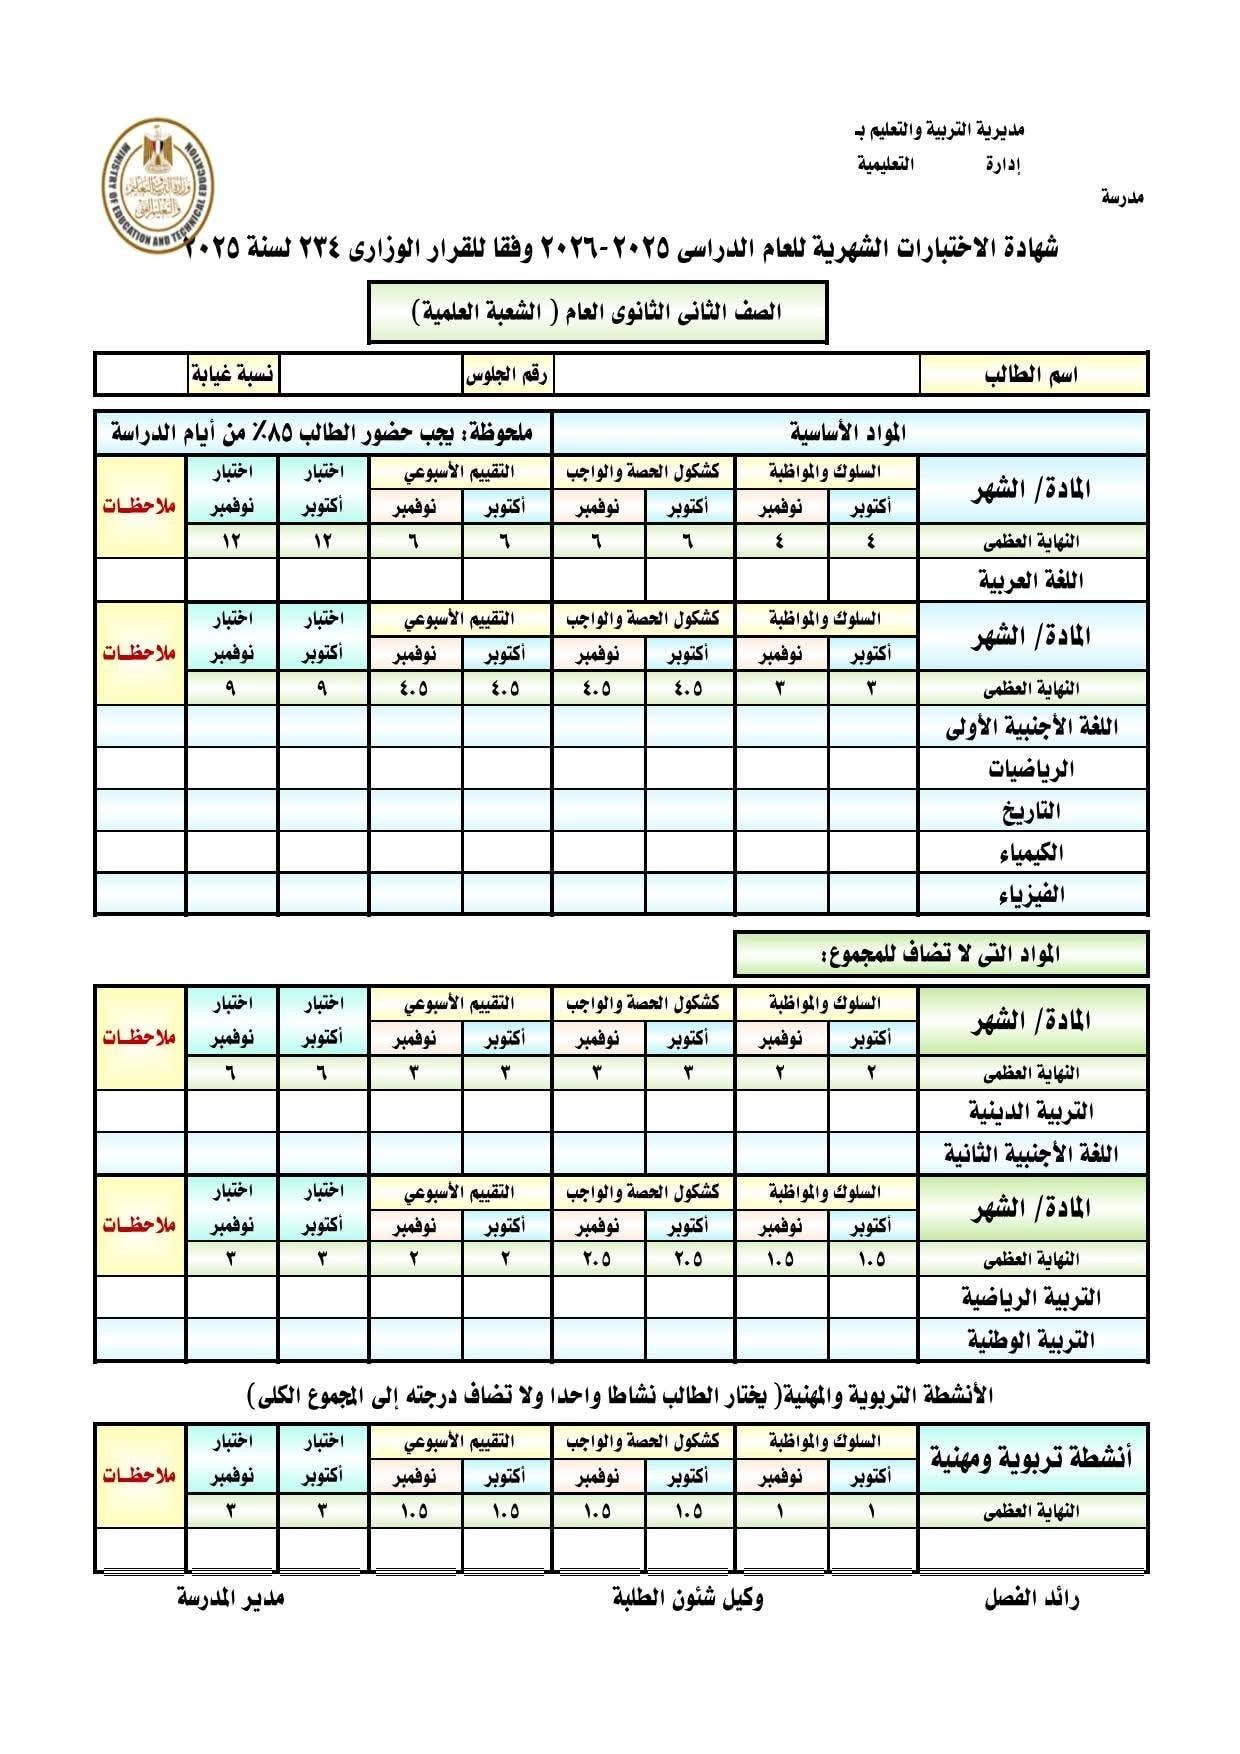 مديرية التربية والتعليم بـ
إدارة التعليمية
مدرسة
MINISTRY OF EDUCATION AND TECHNICAL EDUCATION
وزارة التربية والتعليم
والتعليم الفني
شهادة الاختبارات الشهرية للعام الدراسى ٢٠٢٥-٢٠٢٦ وفقا للقرار الوزارى ٢٣٤ لسنة ٢٠٢٥
الصف الثانى الثانوى العام ( الشعبة العلمية)
اسم الطالب رقم الجلوس نسبة غيابة
المواد الأساسية ملحوظة: يجب حضور الطالب ٨٥٪ من أيام الدراسة
المادة/ الشهر السلوك والمواظبة كشكول الحصة والواجب التقييم الأسبوعي اختبار أكتوبر اختبار نوفمبر ملاحظات
أكتوبر نوفمبر أكتوبر نوفمبر أكتوبر نوفمبر
النهاية العظمى ٤ ٤ ٦ ٦ ٦ ٦ ١٢ ١٢
اللغة العربية
المادة/ الشهر السلوك والمواظبة كشكول الحصة والواجب التقييم الأسبوعي اختبار أكتوبر اختبار نوفمبر ملاحظات
أكتوبر نوفمبر أكتوبر نوفمبر أكتوبر نوفمبر
النهاية العظمى ٣ ٣ ٤.٥ ٤.٥ ٤.٥ ٤.٥ ٩ ٩
اللغة الأجنبية الأولى
الرياضيات
التاريخ
الكيمياء
الفيزياء
المواد التى لا تضاف للمجموع:
المادة/ الشهر السلوك والمواظبة كشكول الحصة والواجب التقييم الأسبوعي اختبار أكتوبر اختبار نوفمبر ملاحظات
أكتوبر نوفمبر أكتوبر نوفمبر أكتوبر نوفمبر
النهاية العظمى ٢ ٢ ٣ ٣ ٣ ٣ ٦ ٦
التربية الدينية
اللغة الأجنبية الثانية
المادة/ الشهر السلوك والمواظبة كشكول الحصة والواجب التقييم الأسبوعي اختبار أكتوبر اختبار نوفمبر ملاحظات
أكتوبر نوفمبر أكتوبر نوفمبر أكتوبر نوفمبر
النهاية العظمى ١.٥ ١.٥ ٢.٥ ٢.٥ ٢ ٢ ٣ ٣
التربية الرياضية
التربية الوطنية
الأنشطة التربوية والمهنية( يختار الطالب نشاطا واحدا ولا تضاف درجته إلى المجموع الكلى)
أنشطة تربوية ومهنية السلوك والمواظبة كشكول الحصة والواجب التقييم الأسبوعي اختبار أكتوبر اختبار نوفمبر ملاحظات
أكتوبر نوفمبر أكتوبر نوفمبر أكتوبر نوفمبر
النهاية العظمى ١ ١ ١.٥ ١.٥ ١.٥ ١.٥ ٣ ٣
رائد الفصل وكيل شئون الطلبة مدير المدرسة